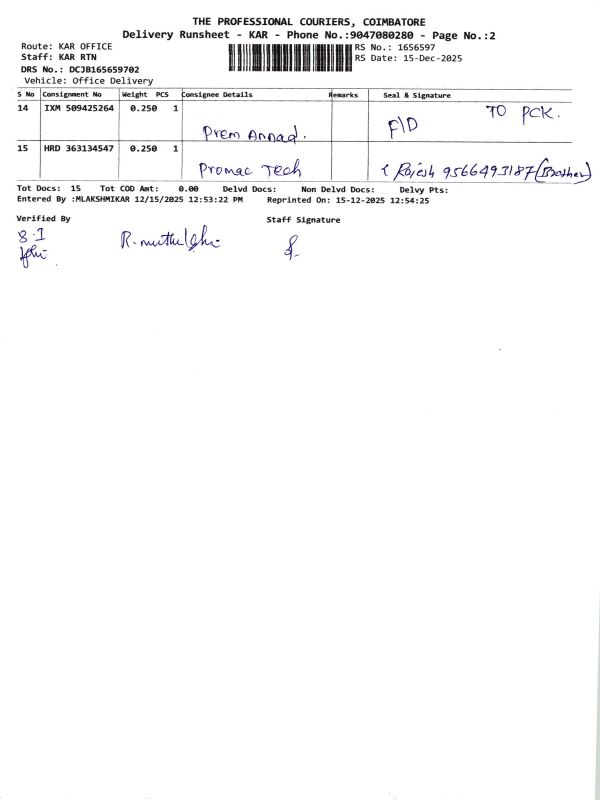 THE PROFESSIONAL COURIERS, COIMBATORE
Delivery Runsheet - KAR - Phone No.:9047080280 - Page No.:2
Route: KAR OFFICE RS No.: 1656597
Staff: KAR RTN RS Date: 15-Dec-2025
DRS No.: DCJB165659702
Vehicle: Office Delivery
S No Consignment No Weight PCS Consignee Details Remarks Seal & Signature
14 IXM 509425264 0.250 1 Prem Annad. F/D TO PCK.
15 HRD 363134547 0.250 1 Promac Tech Rajesh 9566493187 (Brother)
Tot Docs: 15 Tot COD Amt: 0.00 Delvd Docs: Non Delvd Docs: Delvy Pts:
Entered By :MLAKSHMIKAR 12/15/2025 12:53:22 PM Reprinted On: 15-12-2025 12:54:25
Verified By Staff Signature